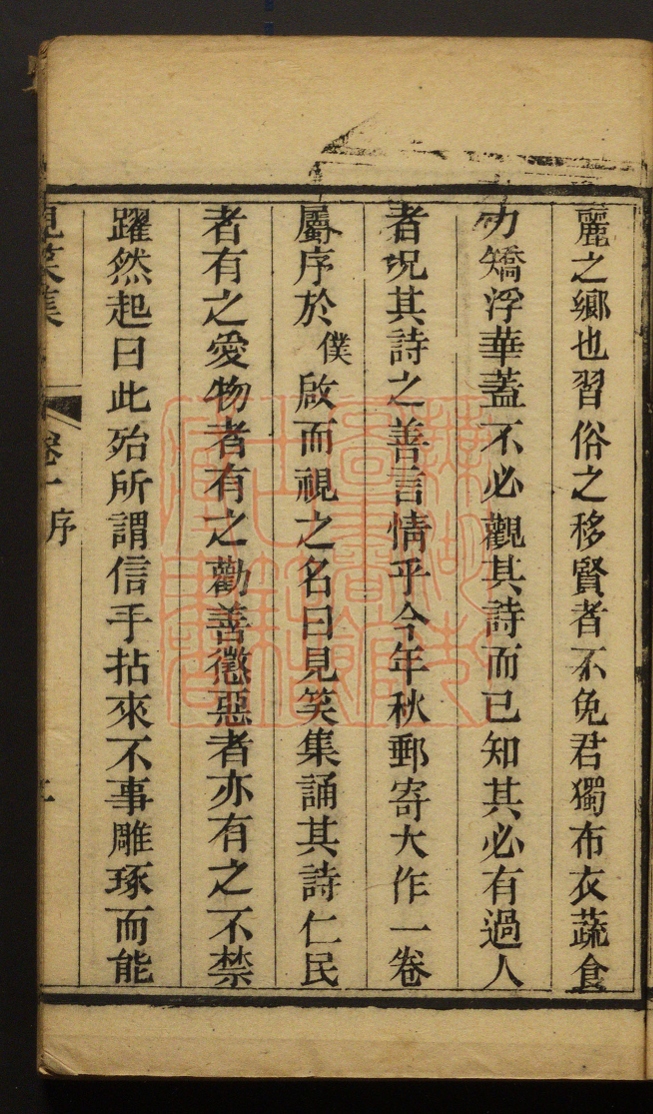 麗之鄉也習俗之移賢者不免君獨布衣蔬食
力矯浮華蓋不必觀其詩而已知其必有過人
者況其詩之善言情乎今年秋郵寄大作一卷
屬序於僕啟而視之名曰見笑集誦其詩仁民
者有之愛物者有之勸善懲惡者亦有之不禁
躍然起曰此殆所謂信手拈來不事雕琢而能
見笑集
卷一
序